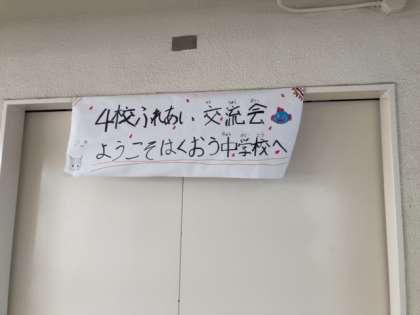 4校ふれあい交流会
ようこそはくおう中学校へ